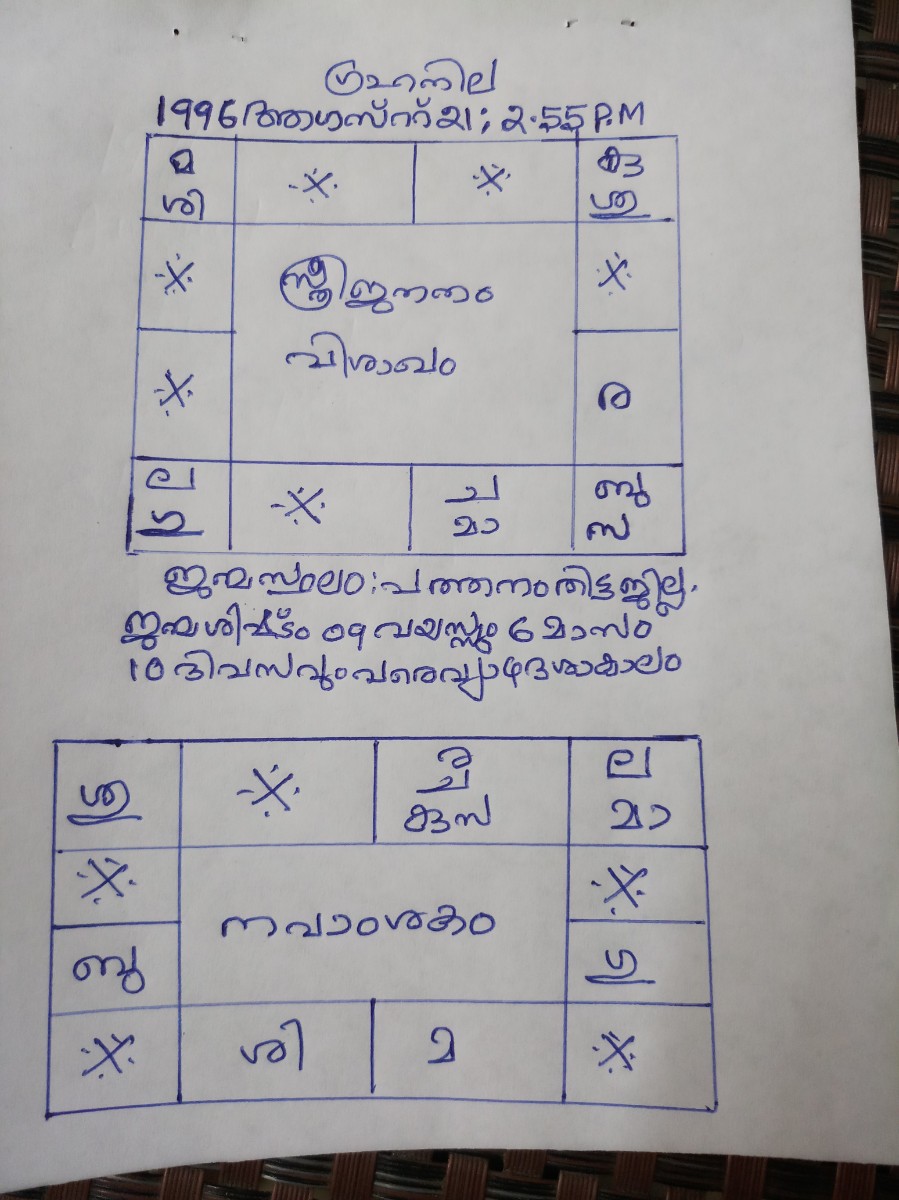 ഗ്രഹനില
1996 ആഗസ്ററ് 21; 2.55 P.M
മ കു
ശി ശു
സ്ത്രീജനനം
വിശാഖം
ര
ല ച ബു
ഗു മാ സ
ജന്മസ്ഥലം: പത്തനംതിട്ട ജില്ല.
ജന്മശിഷ്ടം 09 വയസ്സും 6 മാസം
10 ദിവസവും വരെ വ്യാഴദശാകാലം
ശു ര ച കുസ ല മാ
നവാംശകം
ബു ഗു
ശി മ